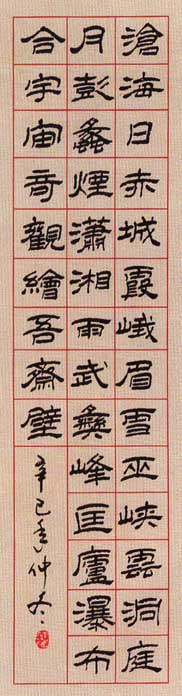 滄海日赤城霞峨眉雪巫峽雲洞庭
月彭蠡煙瀟湘雨武彝峰匡廬瀑布
合宇宙奇觀繪吾齋壁
辛巳年仲冬